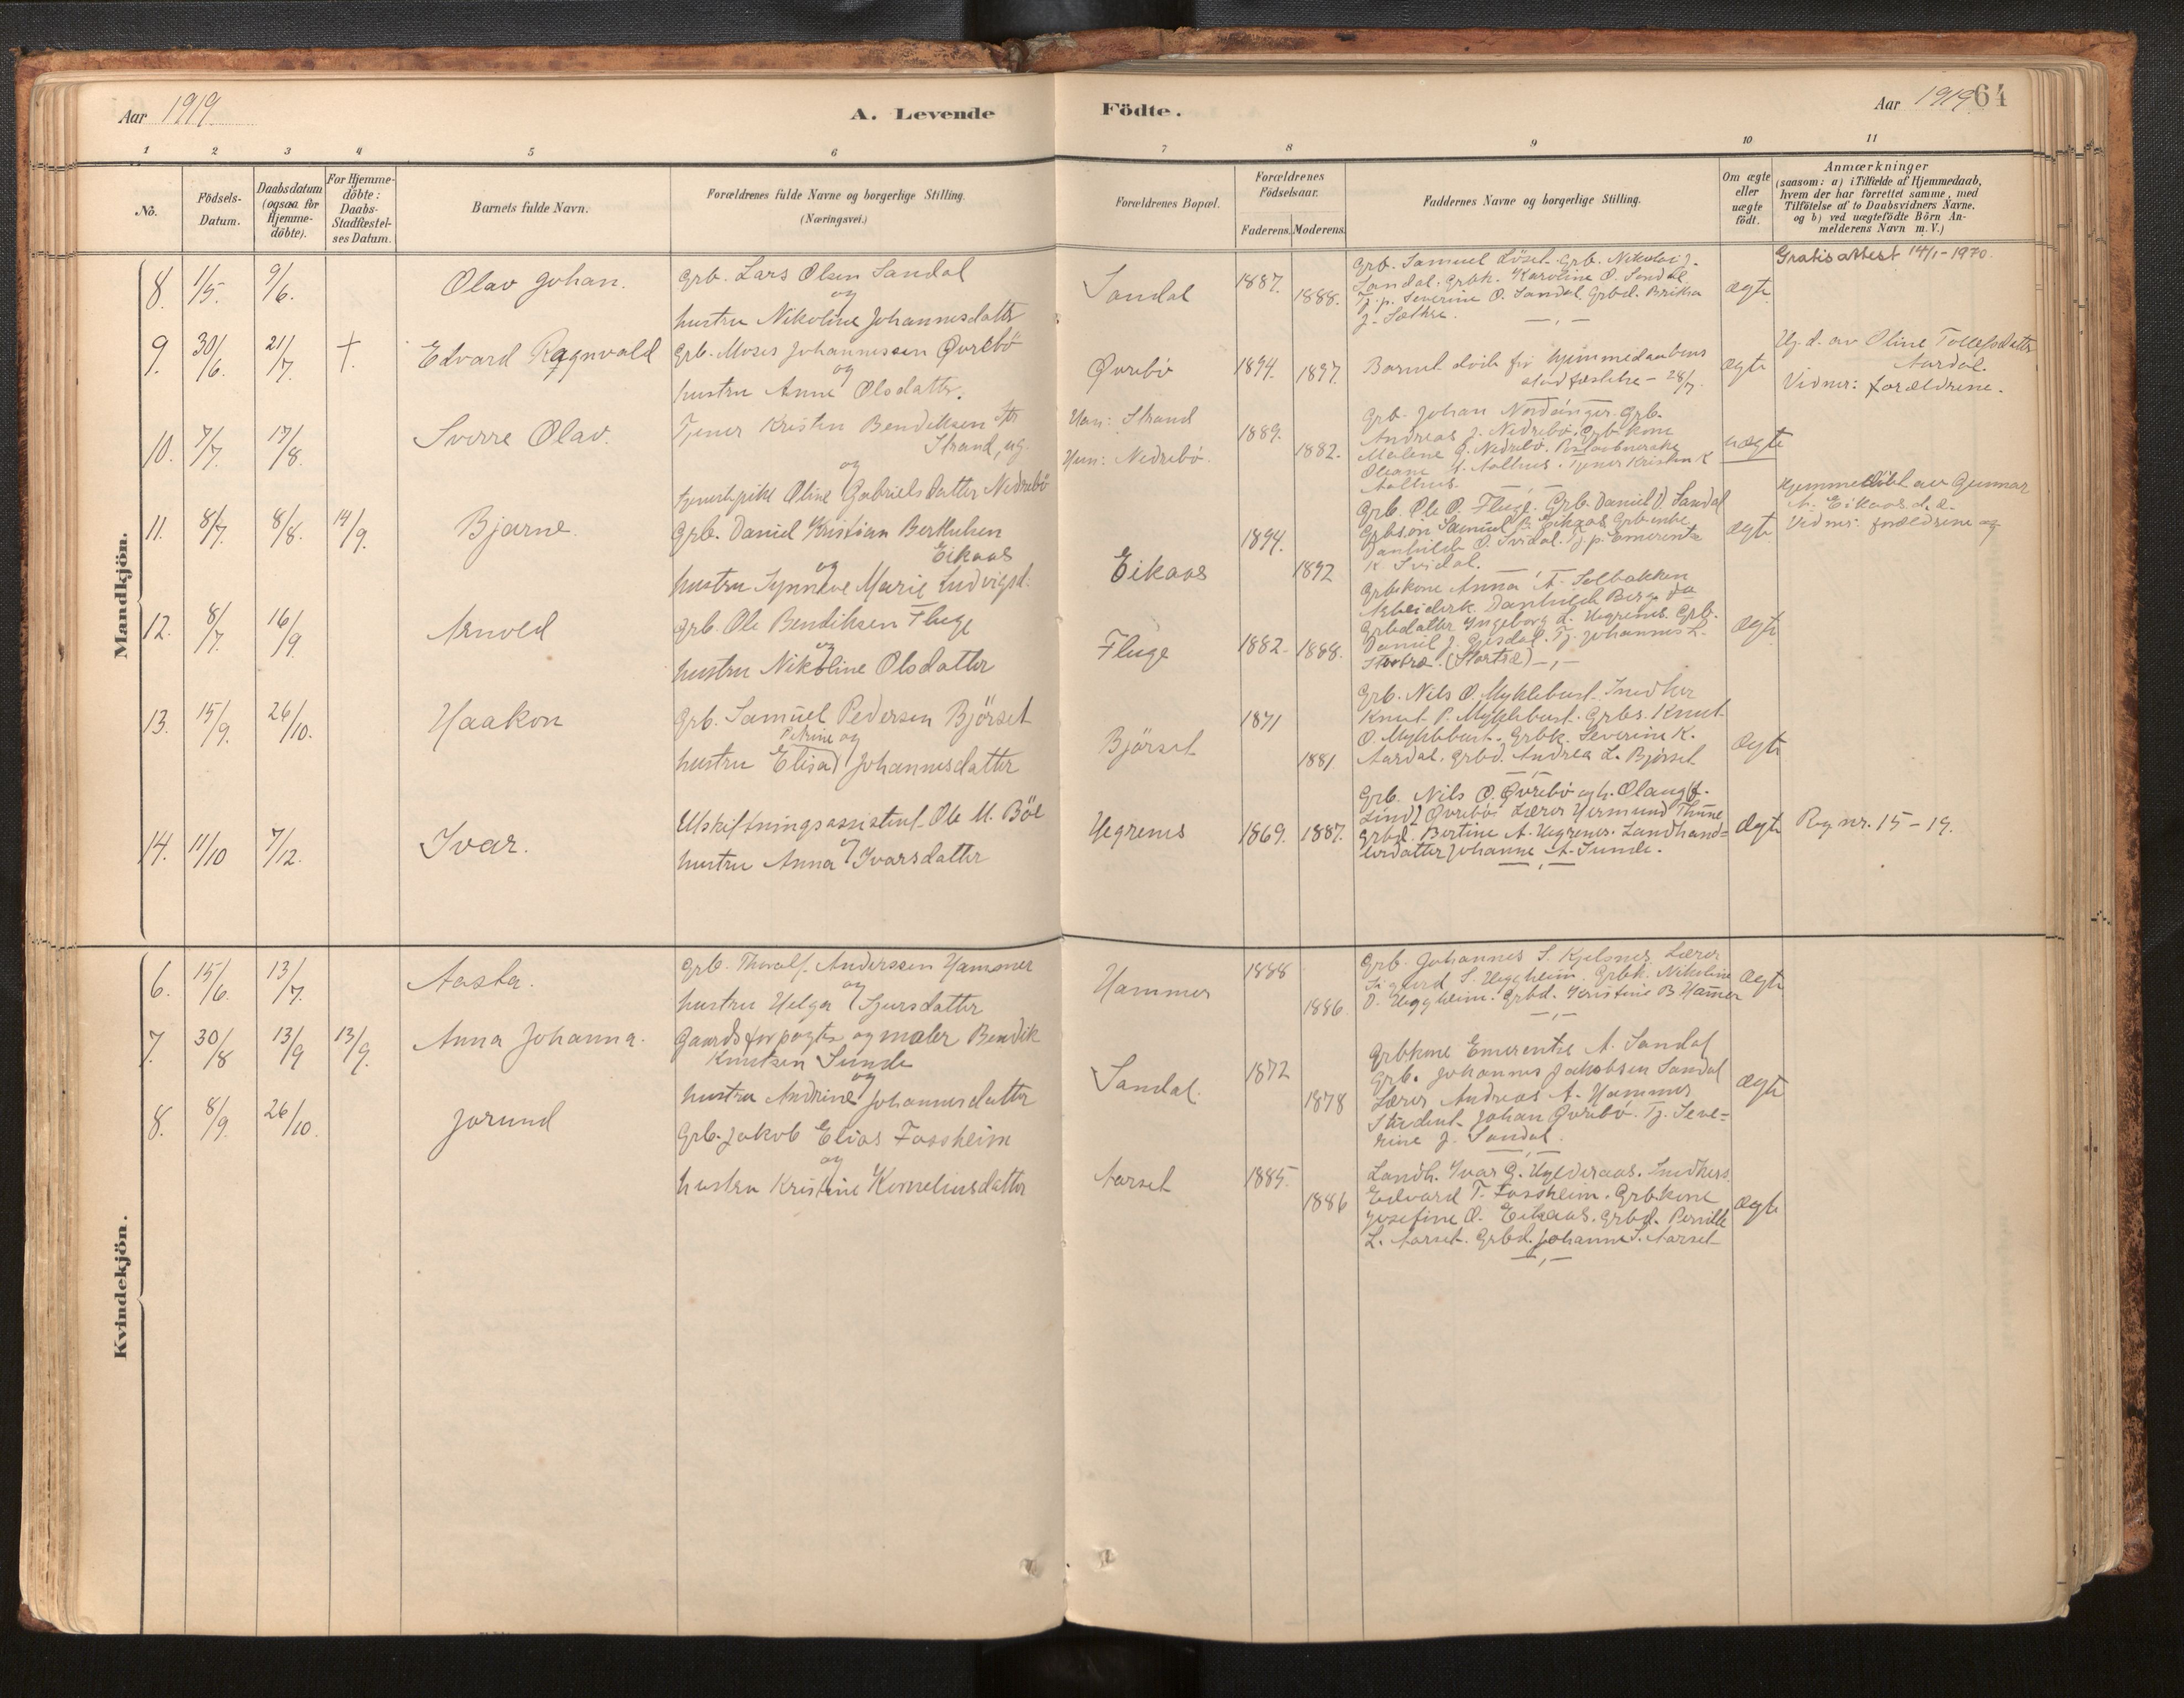 Aar 1919.
A. Levende
Födte.
Aar 1919 64
1 2 3 4 5 6 7 8 9 10 11
No.
Födsels-
Datum.
Daabsdatum
(ogsaa for
Hjemme-
döbte).
For Hjemme-
döbte:
Daabs-
Stadfæstel-
ses Datum.
Barnets fulde Navn.
Forældrenes fulde Navne og borgerlige Stilling.
(Næringsvei.)
Forældrenes Bopæl.
Forældrenes
Födselsaar.
Faderens. Moderens.
Faddernes Navne og borgerlige Stilling.
Om ægte
eller
uægte
födt.
Anmærkninger
(saasom: a) i Tilfælde af Hjemmedaab,
hvem der har forrettet samme, med
Tilföielse af to Daabsvidners Navne,
og b) ved uægtefödte Börn An-
melderens Navn m. V.)
Mandkjön.
8. 1/5. 9/6. Olav Johan.
Grb. Lars Olsen Sandal
og
hustru Nikoline Johannesdatter
Sandal 1887. 1888.
Grb. Samuel Löset. Grb. Nikolai J.
Sandal. Grbk. Karoline O. Sandal.
Tj. p. Severine O. Sandal. Grbd. Brikha
J. Sæthre. —,—
ægte
Gratis attest 14/1-1970.
9. 30/6. 21/7. †. Edvard Ragnvald
Grb. Moses Johannessen Øvrebö
og
hustru Anne Olsdatter.
Øvrebö 1894. 1897.
Barnet döde för hjemmedaabens
stadfæstelse - 28/7.
ægte
Hj. d. av Oline Tollefsdatter
Aardal.
Vidner: forældrene.
10. 7/7. 17/8. Sverre Olav.
Tjener Kristen Bendiksen
Strand, ug.
og
tjenestepike Oline Gabrielsdatter Nedrebö
Han: Strand
Hun: Nedrebö.
1889. 1882.
Grb. Johan Nordanger. Grb.
Andreas J. Nedrebö. Grb.kone
Malene G. Nedrebö.
Oleane Aalhus. Tjener Kristen K
Aalhus.
uægte
11. 8/7. 8/8. 14/9. Bjarne.
Grb. Daniel Kristian Berthelsen
Eikaas
og
hustru Synneve Marie Ludvigsd.
Eikaas 1894. 1892
Grb. Ole O. Fluge. Grb. Daniel D. Sandal
Grbsön Samuel B. Eikaas
Danhilde O. Svidal. Tj. p. Emerentse
K Svidal.
ægte
Hjemmedöbt av Gunnar
A. Eikaas d. e.
Vidner: forældrene og
12. 8/7. 16/9 Arnold
Grb. Ole Bendiksen Fluge
og
hustru Nikoline Olsdatter
Fluge 1882. 1888.
Grbkone Anna A. Solbakken
Arbeiderk. Danhilde Berge
Grbdatter Ingeborg d. Hegrenes. Grb.
Daniel J. Gjesdal. Tj. Johannes L.
(Stortræ) —,—
ægte
13. 15/9. 26/10. Haakon
Grb. Samuel Pedersen Björset
Petrine og
hustru Elisa Johannesdatter
Björset 1871 1881
Grb. Nils O. Myklebust. Indher
Knut P. Myklebust. Grbs. Knut
O. Myklebust. Grbk. Severine K.
Aardal. Grbd. Andrea L. Björset
—,—
ægte
14. 11/10 7/12. Ivar.
Utskiftningsassistent Ole M. Böe
og
hustru Anna Ivarsdatter
Hegrenes 1869. 1887.
Grb. Nils O. Øvrebö og h. Olaug
Øvrebö. Lærer Hermund Thune
Grbd. Bertine A. Hegrenes. Landhand-
lerdatter Johanne A. Sunde.
—,—
ægte
Reg nr. 15-19.
Kvindekjön.
6. 15/6. 13/7. Aasta.
Grb. Thoralf Anderssen Hammer
og
hustru Helga Sjursdatter
Hammer 1888 1886.
Grb. Johannes S. Kjelsnes. Lærer
Sigurd S. Heggheim. Grbk. Nikoline
O. Heggheim. Grbd. Kristine B Hamer
—,—
ægte
7. 30/8 13/9 13/9. Anna Johanna.
Gaardsforpagter og maler Bendik
Knutsen Sunde
og
hustru Andrine Johannesdatter
Sandal. 1872 1878
Grbkone Emerentse A. Sandal
Grb. Johannes Jakobsen Sandal
Lærer Andreas A. Hammer
Student Johan Øvrebö. Tj. Seve-
rine J. Sandal.
—,—
ægte
8. 8/9. 26/10. Jorund
Grb. Jakob Elias Fossheim
og
hustru Kristine Korneliusdatter
Aarset 1885. 1886
Landh. Ivar G. Hylderaas. Indhers.
Edvard T. Fossheim. Grb.kone
Josefine O. Eikaas. Grbd. Pernille
L. Aarset. Grbd. Johanne S. Aarset
—,—
ægte